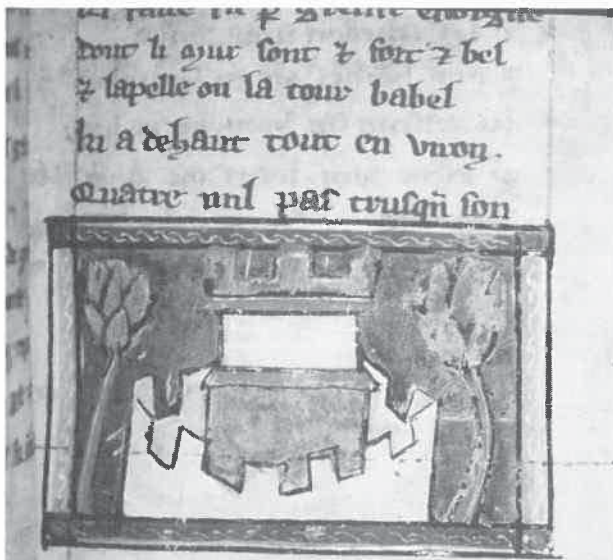 dont li mur sont ⁊ fort ⁊ bel
⁊ lapelle on la tour babel
ki a dehaut tout en viron.
Quatre mil pas trusqñ son